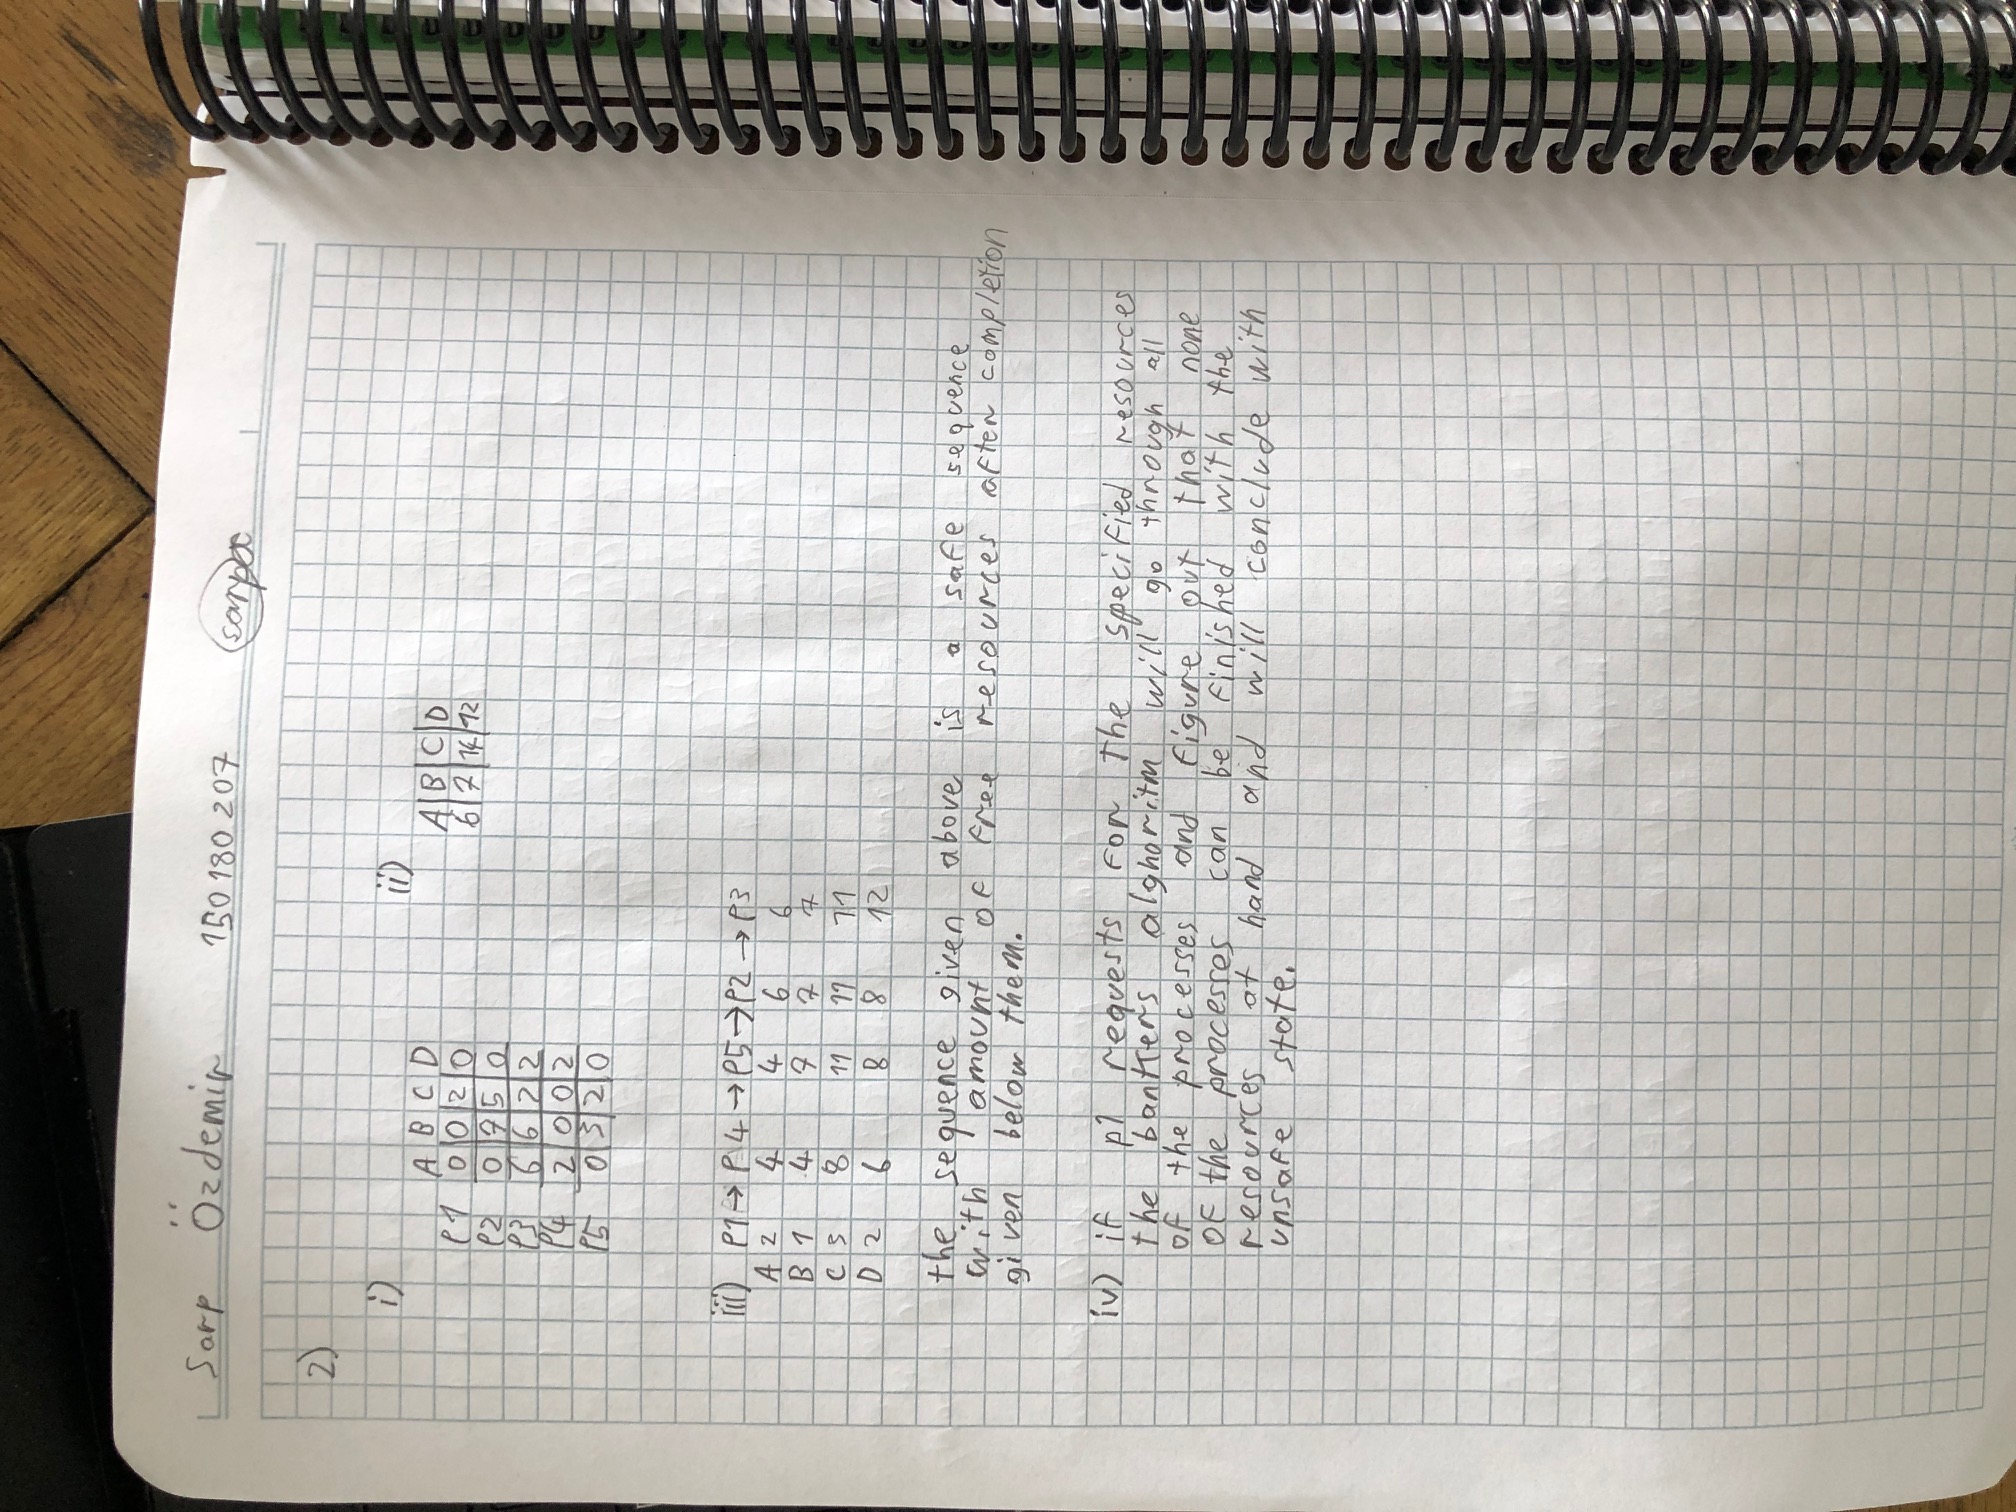 Sarp Özdemir 150180207
2)
i)
A B C D
P1 0 0 2 0
P2 0 7 5 0
P3 6 6 2 2
P4 2 0 0 2
P5 0 3 2 0
ii)
A B C D
6 7 14 12
iii) P1 → P4 → P5 → P2 → P3
A 2 4 4 6 6
B 1 4 7 7 7
C 3 8 11 11 11
D 2 6 8 8 12
the sequence given above is a safe sequence
with amount of free resources after completion
given below them.
iv) if p1 requests for the specified resources
the bankers alghoritm will go through all
of the processes and figure out that none
of the processes can be finished with the
resources at hand and will conclude with
unsafe state.